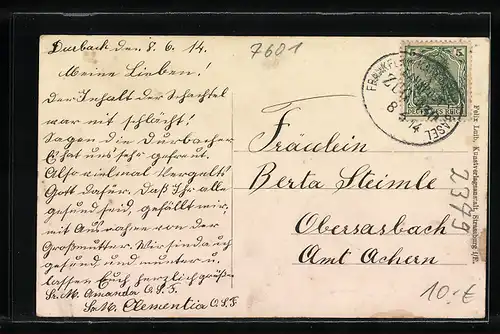 Durbach den 8. 6. 14.
Meine Lieben!
Der Inhalt der Schachtel
war nit schlächt!
Sagen die Durbacher
E'hat uns sehr gefreut.
Also vielmal Vergelts
Gott dafür. Daß Ihr alle
gesund seid, gefällt mir,
mit Ausnahme von der
Großmutter. Wir sind auch
gesund und munter u.
lassen Euch herzlich grüßen
Sr. M. Amanda O.S.F.
Sr. M. Clementia O.S.F
7601
5 5
DEUTSCHES REICH
FRANKFURT
ZUG
8 6 14
BASEL
Fräulein
Berta Steimle
Obersasbach
Amt Achern
Felix Luib, Kunstverlagsanstalt, Strassburg i/E.
2379
10.-€